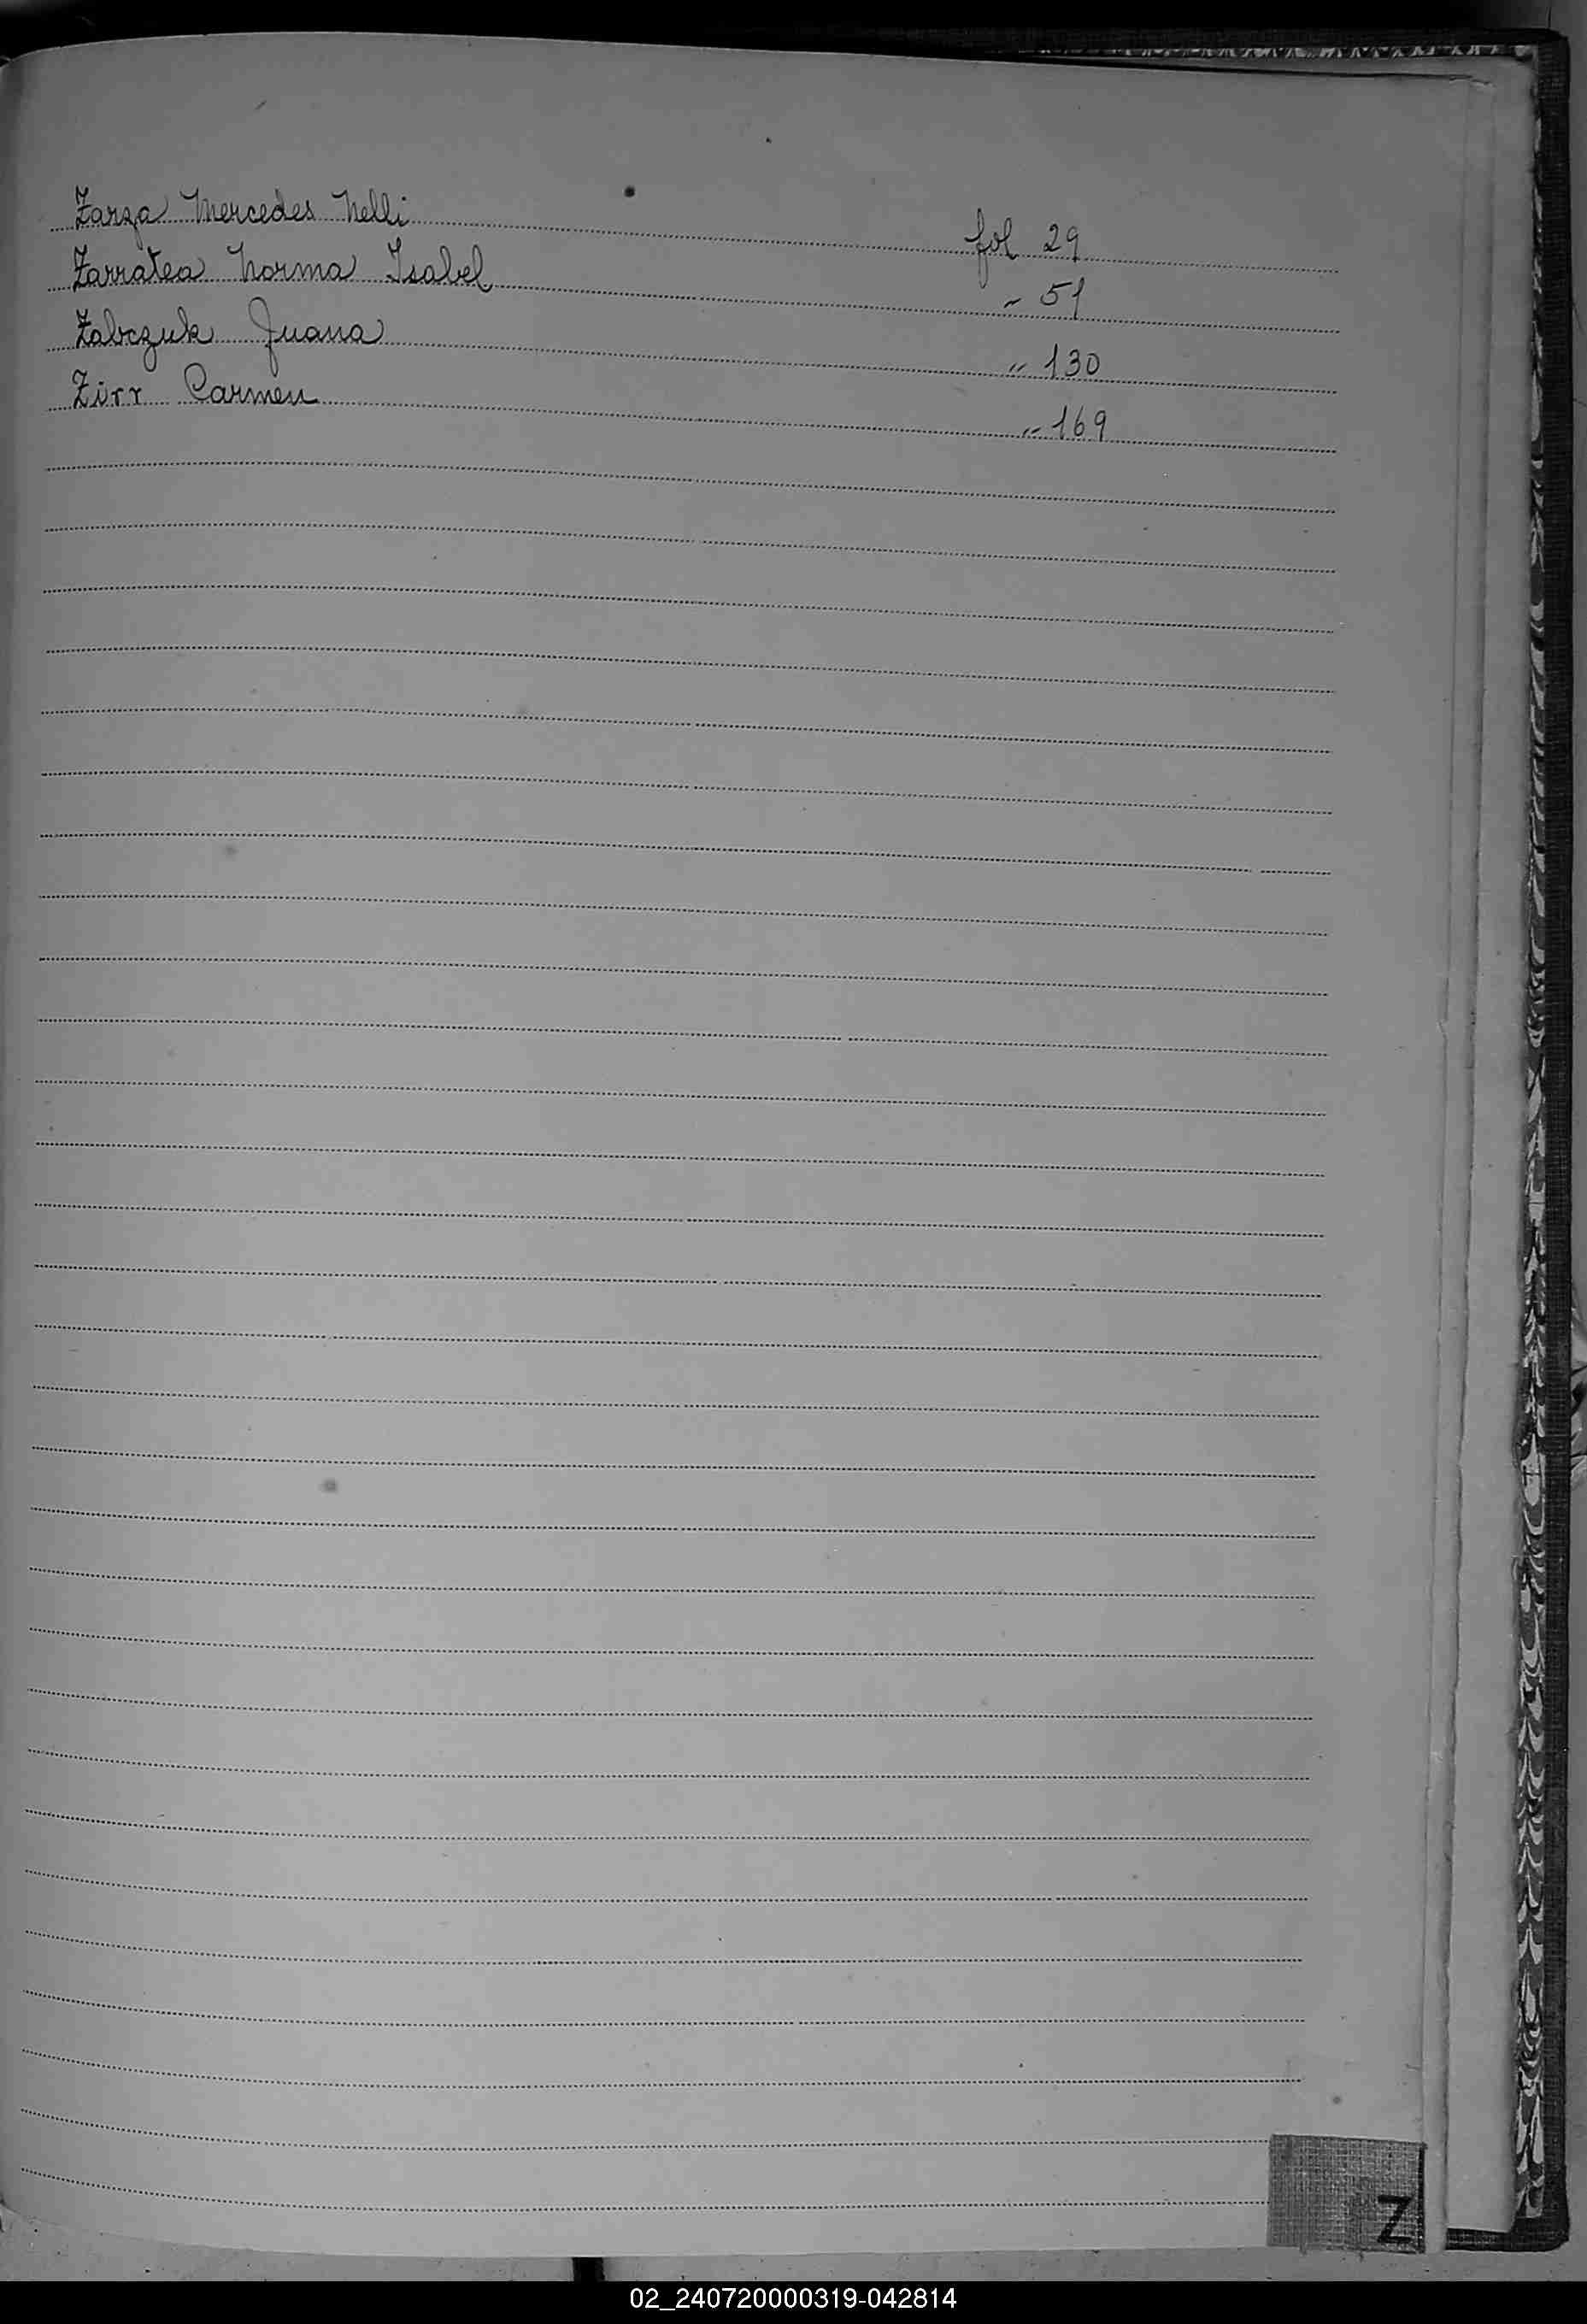 Zarza Mercedes Nelli fol 29
Zarratea Norma Isabel " 51
Zabczuk Juana " 130
Zirr Carmen " 169
Z
02_240720000319-042814